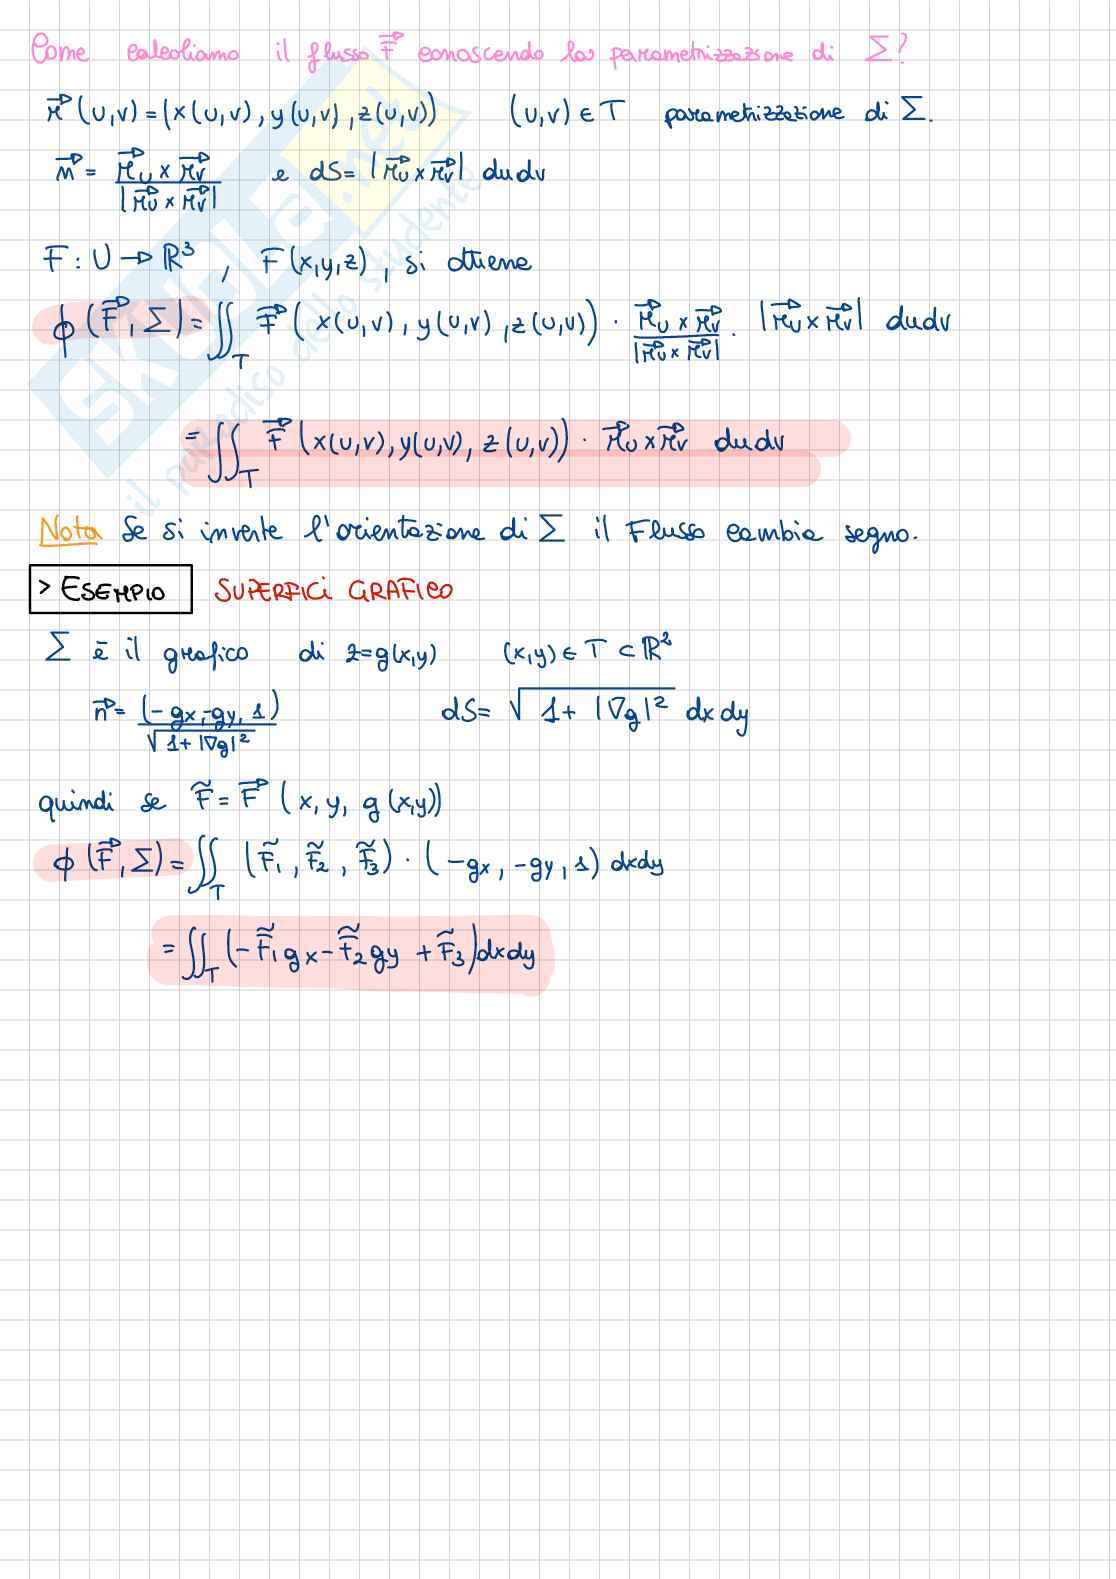 Come calcoliamo il flusso F⃗ conoscendo la parametrizzazione di Σ?
r⃗(u,v) = (x(u,v), y(u,v), z(u,v)) (u,v) ∈ T parametrizzazione di Σ.
n⃗ = r⃗u × r⃗v / |r⃗u × r⃗v| e dS = |r⃗u × r⃗v| dudv
F : U → ℝ³, F(x,y,z), si ottiene
ϕ(F⃗, Σ) = ∬_T F⃗(x(u,v), y(u,v), z(u,v)) · r⃗u × r⃗v / |r⃗u × r⃗v| · |r⃗u × r⃗v| dudv
= ∬_T F⃗(x(u,v), y(u,v), z(u,v)) · r⃗u × r⃗v dudv
Nota Se si inverte l'orientazione di Σ il Flusso cambia segno.
> ESEMPIO SUPERFICI GRAFICO
Σ è il grafico di z=g(x,y) (x,y) ∈ T ⊂ ℝ²
n⃗ = (-gx, -gy, 1) / √(1+|∇g|²) dS = √(1+|∇g|²) dxdy
quindi se F̃ = F⃗(x, y, g(x,y))
ϕ(F⃗, Σ) = ∬_T (F̃₁, F̃₂, F̃₃) · (-gx, -gy, 1) dxdy
= ∬_T (-F̃₁gx - F̃₂gy + F̃₃) dxdy
SKUOLA.net
il paradiso dello studente